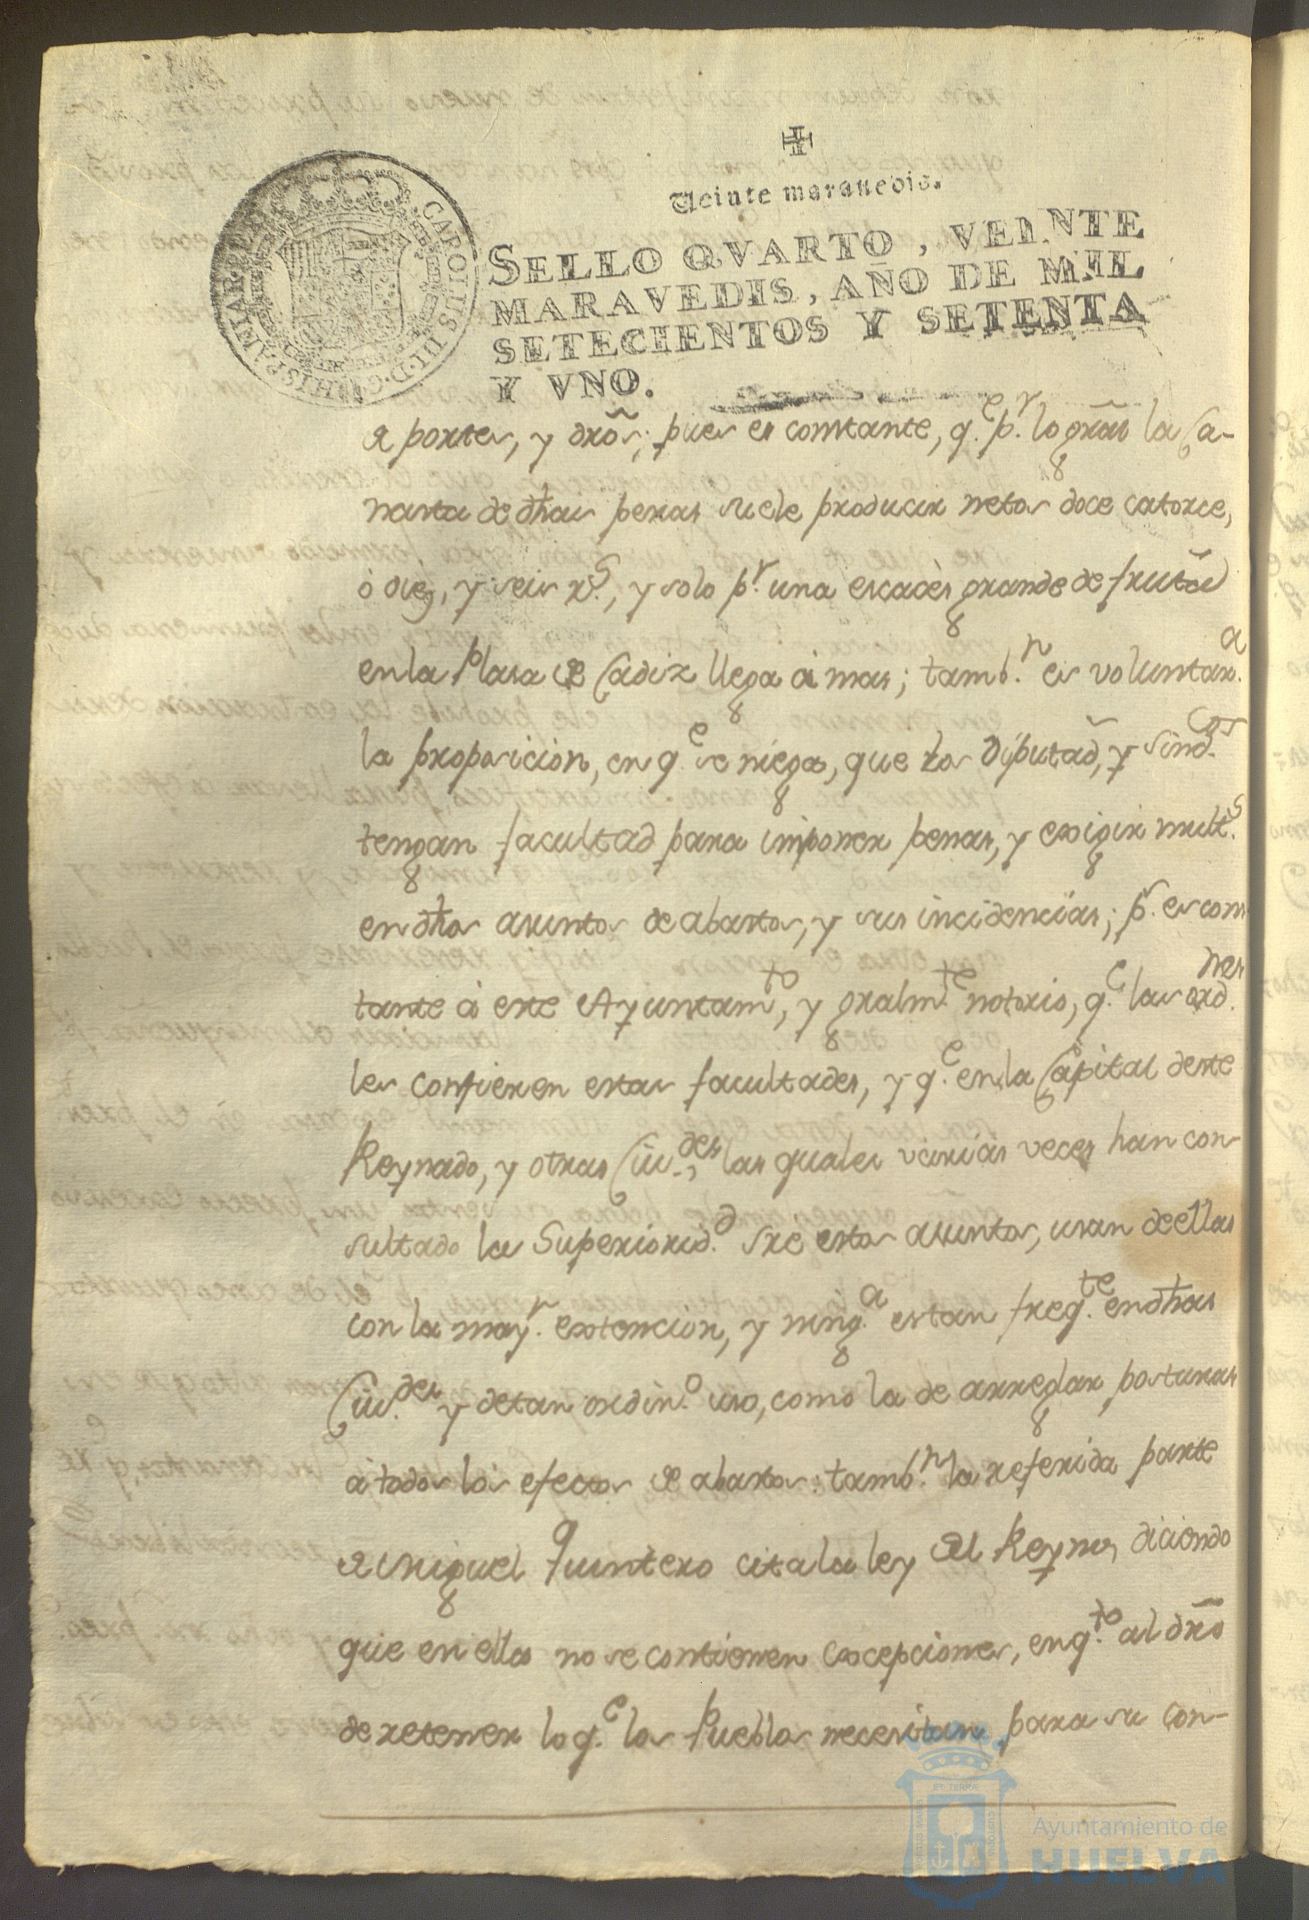 Veinte maravedis.
SELLO QVARTO, VEINTE
MARAVEDIS, AÑO DE MIL
SETECIENTOS Y SETENTA
Y VNO.
CAROLUS III D G HISPANIAR REX
de portes, y dr̃os; pues es constante, q.e p.r lo grãl la Ca-
nasta de dhas peras suele producir netos doce catorce,
ó diez, y seis r.s, y solo p.r una escacès grande de frutas
en la Plasa de Cadiz llega á mas; tamb.n es voluntar.a
la proposicion, en q.e se niega, que los Diputad.s, y Sind.cos
tengan facultad para imponer penas, y exigir mult.s
en dhos asuntos de abastos, y sus incidencias; p.r es cons
tante á este Ayuntam.to, y gralm.te notorio, q.e las ord.nes
les confieren estas facultades, y q.e en la Capital deste
Reynado, y otras Ciu.des las quales varias veces han con-
sultado la Superiorid.d sre estos asuntos, usan de ellas
con la may.r extencion, y ning.a es tan freq.te en dhas
Ciu.des y de tan ordin.o uso, como la de arreglar posturas
á todos los efectos de abastos: tamb.n la referida parte
de Miguel Quintero cita la ley del Reyno, diciendo
que en ella no se contienen excepciones, en q.to al dr̃o
de retener lo q.e los Pueblos necesitan para su con-
Ayuntamiento de
HUELVA